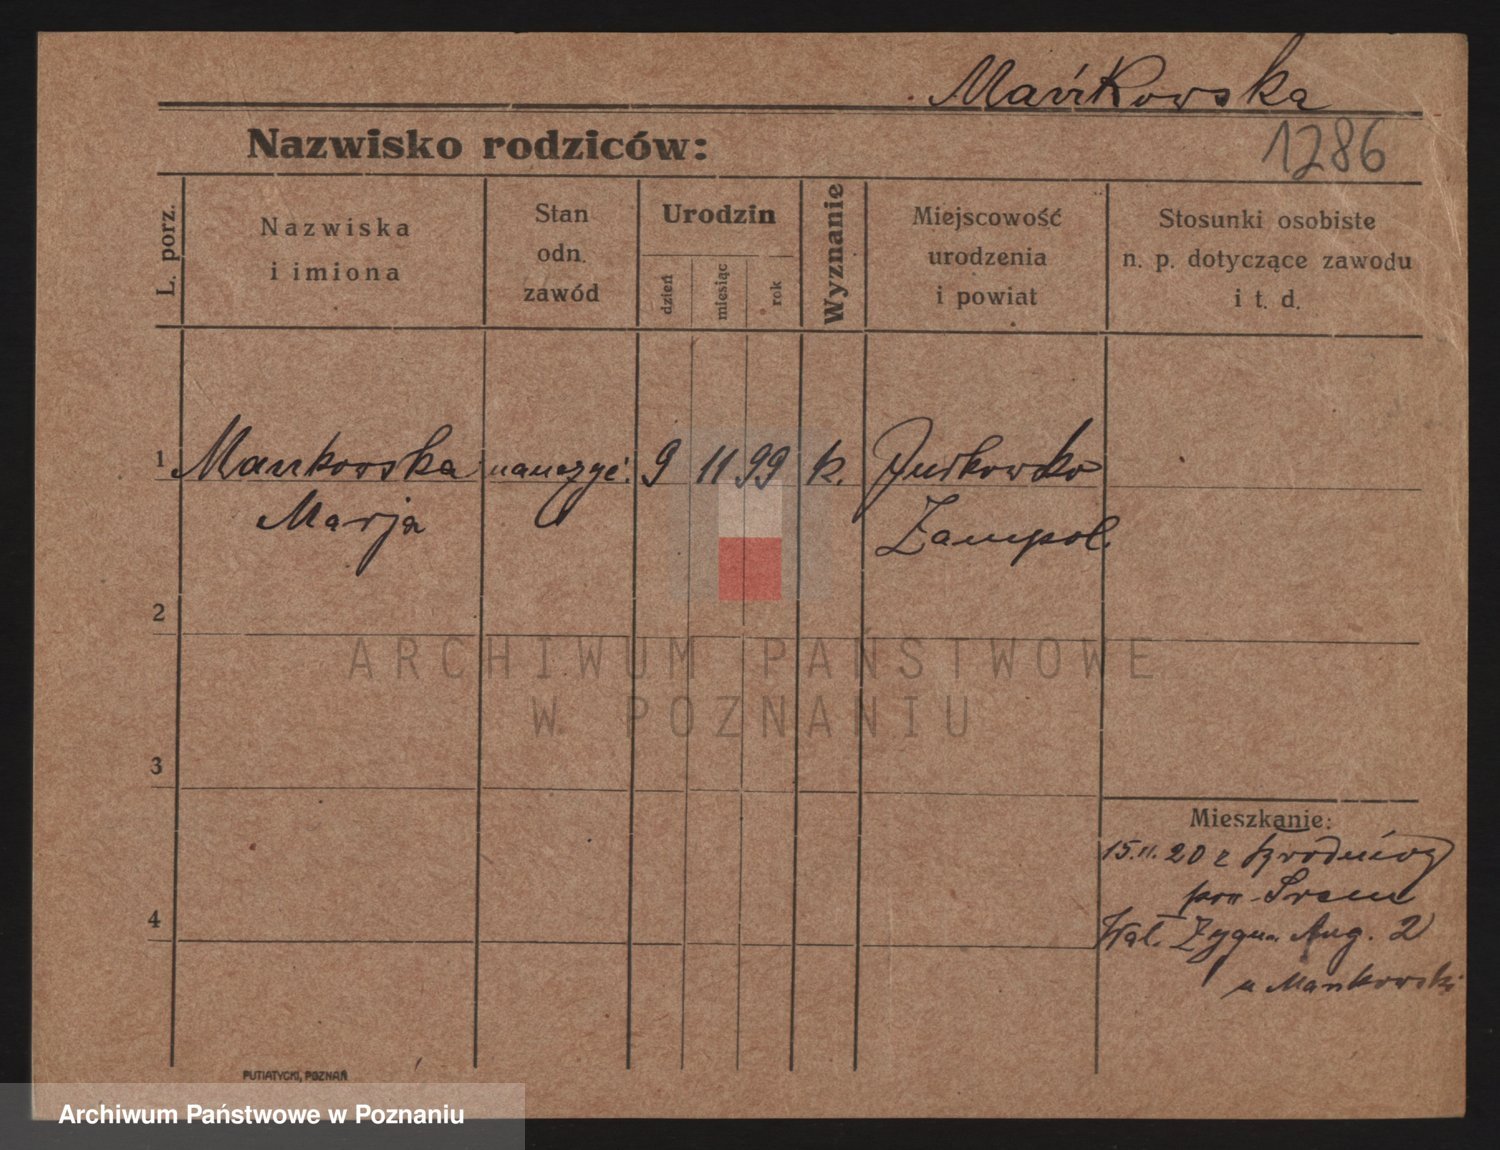 Mańkowska
Nazwisko rodziców:
1286
L. porz.
Nazwiska
i imiona
Stan
odn.
zawód
Urodzin
dzień
miesiąc
rok
Wyznanie
Miejscowość
urodzenia
i powiat
Stosunki osobiste
n. p. dotyczące zawodu
i t. d.
1 Mankowska nauczyć. 9 11 99 k. Jurkowsko
Marja Zampol.
2
ARCHIWUM PAŃSTWOWE
W POZNANIU
3
Mieszkanie:
15.11.20 z
pow. Śrem
4
Wał. Zygm. Aug. 2
u Mankowski
PUTIATYCKI, POZNAŃ
Archiwum Państwowe w Poznaniu